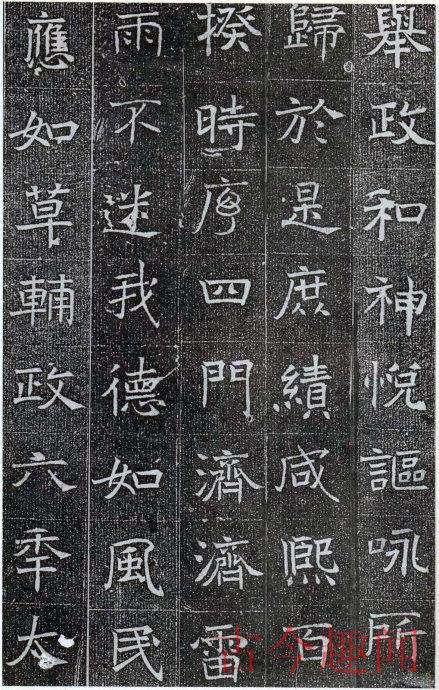 舉政和神悅謳咏所
歸於是庶績咸熙百
揆時序四門濟濟雷
雨不迷我德如風民
應如草輔政六年太
古今趣闻